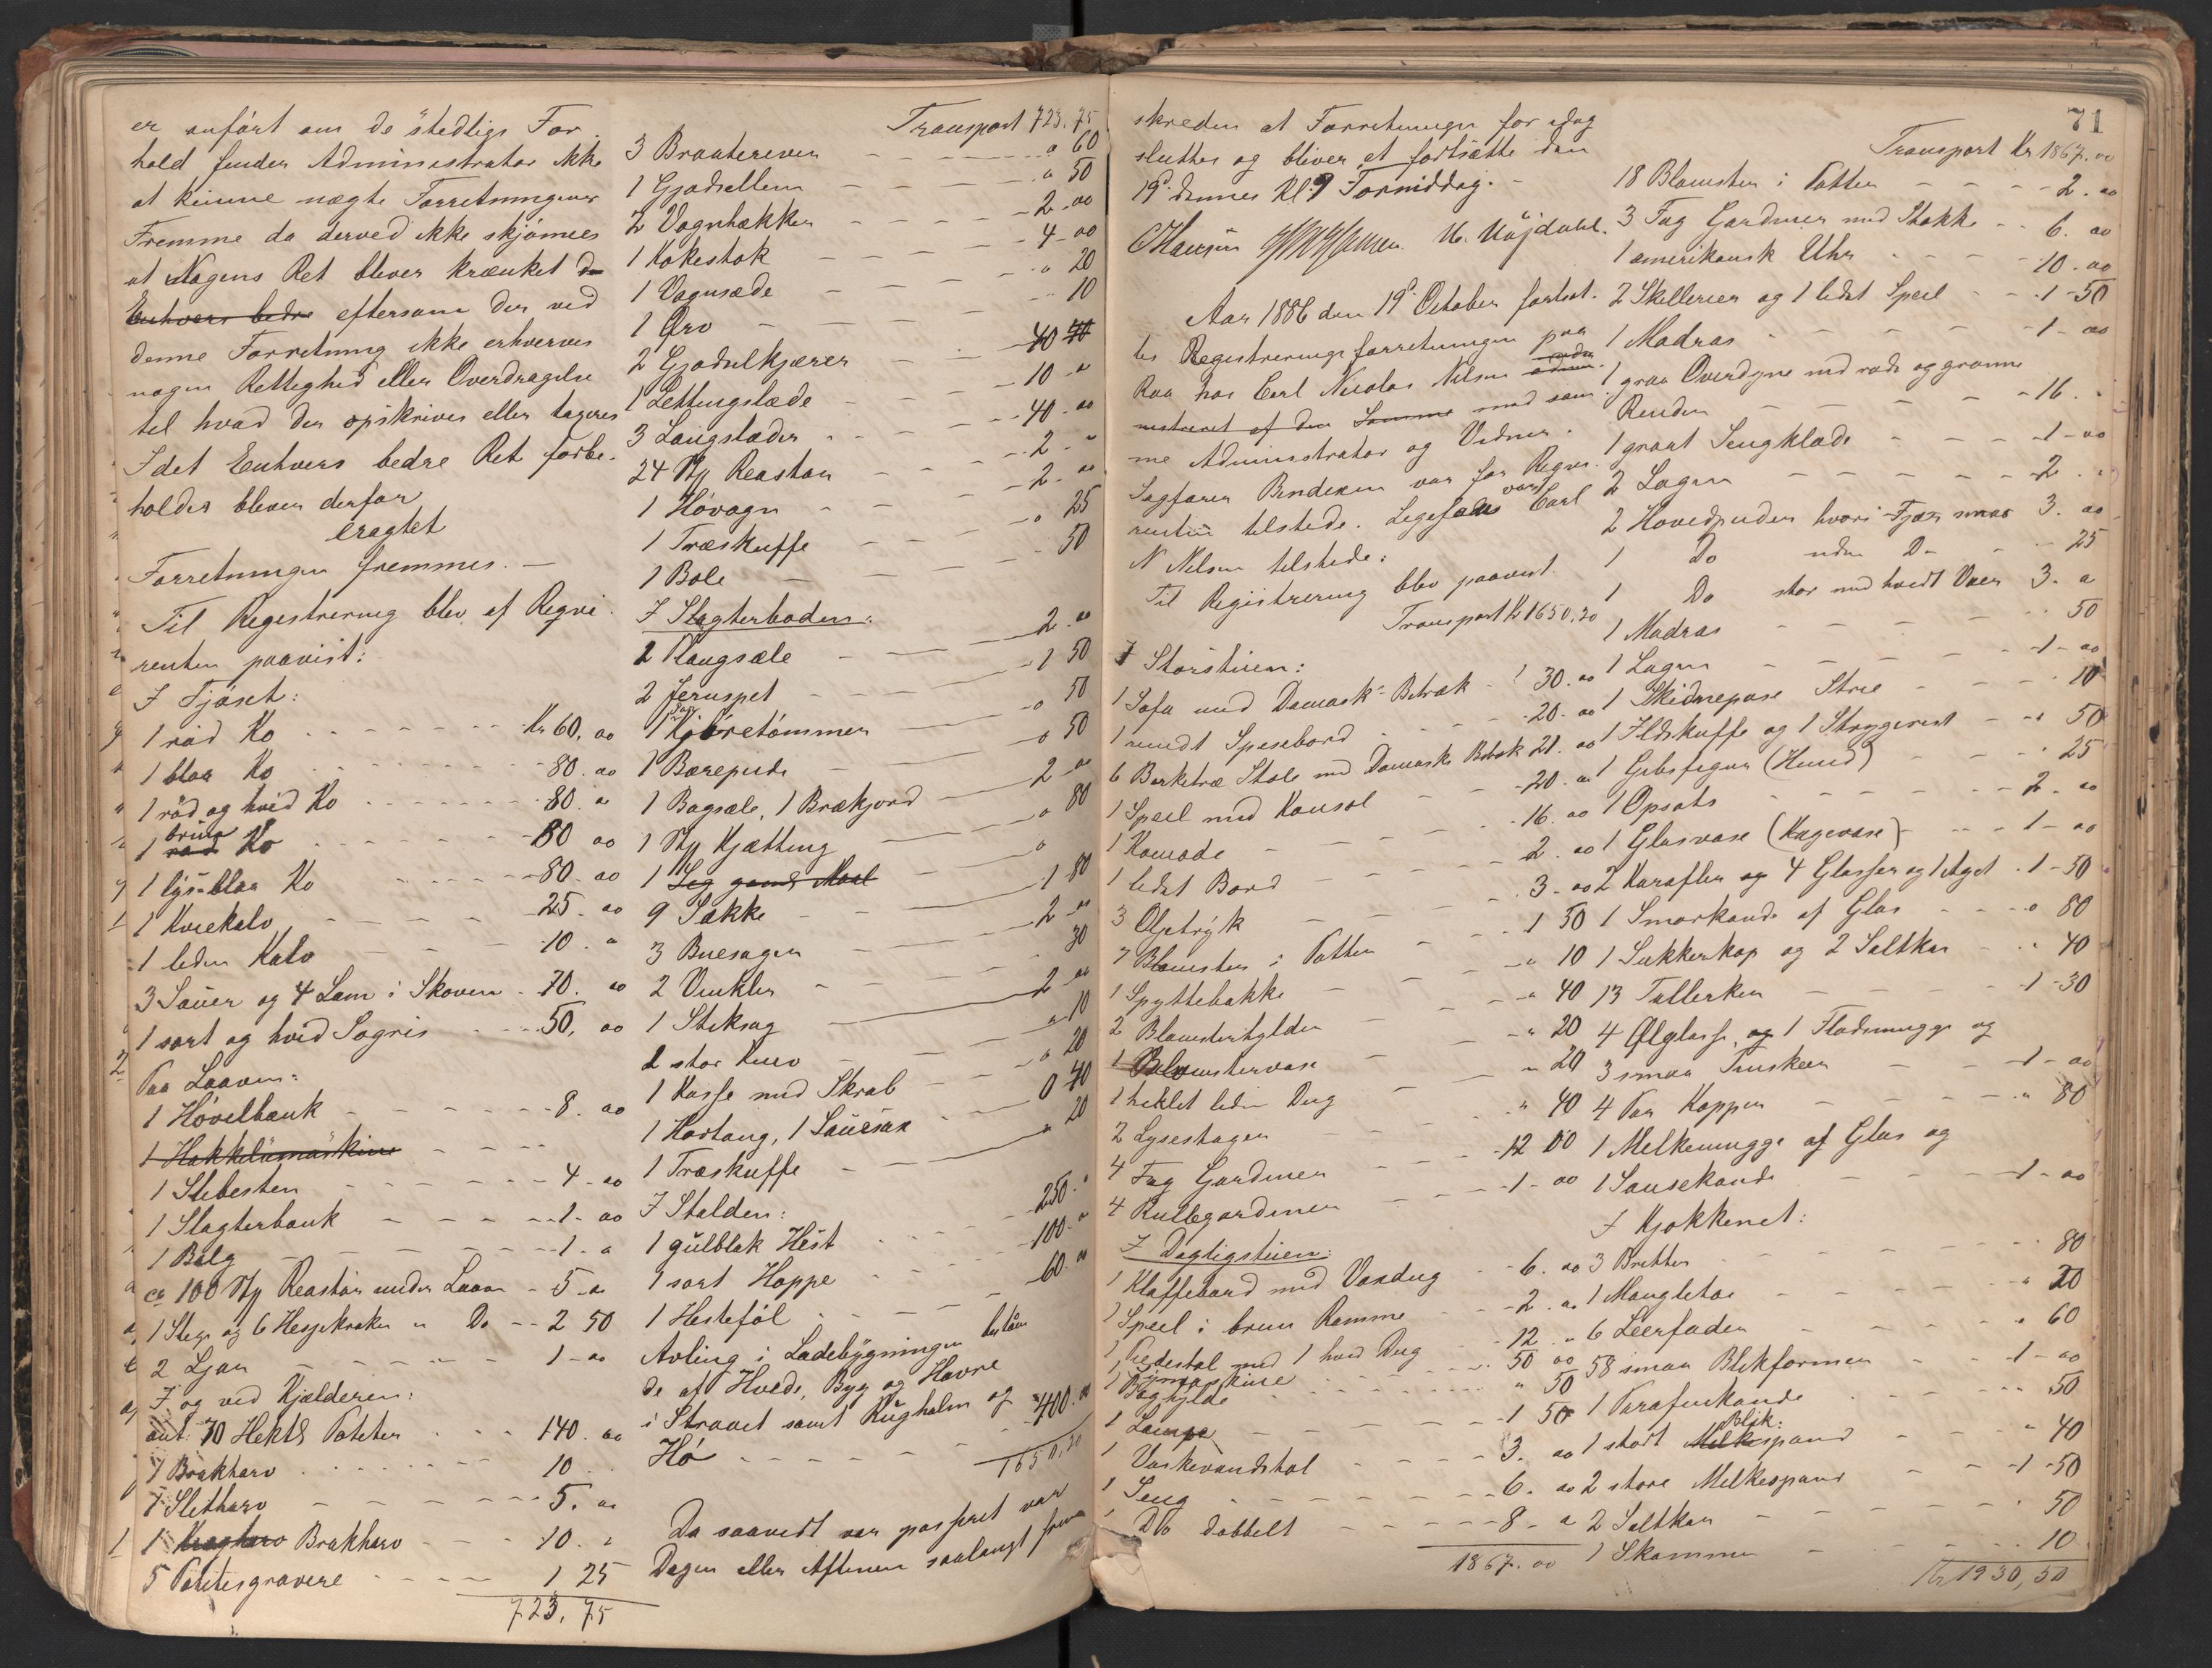 er anført om de "stedlige For
hold finder Administrator ikke
at kunne nægte Forretningens
Fremme da derved ikke skjønnes
at Nogens Ret bliver krænket da
Enhvers bedre eftersom der ved
denne Forretning ikke erhverves
nogen Rettighed eller Overdragelse
til hvad der opskrives eller tageres
I det Enhvers bedre Ret forbe-
holdes bliver derfor
eragtet
Forretningen fremmes. —
Til Registrering blev af Reqvi-
renten paavist:
I Fjöset:
1 röd Ko Kr 60, 00
1 blaa Ko 80. 00
1 röd og hvid Ko 80. "
1 röd brun Ko 80 00
1 lys-blaa Ko 80. 00
1 Kviekalv 25. 00
1 liden Kalv 10. "
3 Sauer og 4 Lam i Skoven 70. 00
1 sort og hvid Sogris 50, 00
Paa Laaven:
1 Hövelbænk 8. 00
1 Hakkelsmaskine
1 Slibesten 4 - 00
1 Slagterbænk 1 - 00
1 Bælg 1 - "
ca 100 Stk Reastör under Laaven 5 - "
1 Stige og 6 Hesjekraker " Do 2 50
2 Ljaa 1 - 00
I og ved Kjælderen:
ant. 70 Hektl Poteter 140. 00
1 Brakharv 10
1 Sletharv 5. 00
1 Kragharv Brakharv 10. "
5 Potetesgravere 1 25
723, 75
Transport 723, 75
3 Braaterever " 60
1 Gjødsellem " 50
2 Vognhækker 2 - 00
1 Kokestok 4 - 00
1 Vognsæde " 20
1 Orv 10
2 Gjødselkjærer 40 40
1 Lettingslæde 10 - "
3 Langslæder 40 - 00
24 Stk Reastör 2 - "
1 Høvogn 2 - 00
1 Træskuffe " 25
1 Bole 50
I Slagterboden:
2 Plougsæle 2 - 00
2 Jernspet 1 50
1 Par Kjöretömmer " 50
1 Bærepude " 50
1 Bogsæle, 1 Brækjord 2 - 00
1 Stk Kjætting " 80
1 Leg gamle Maal "
9 Sække 1 80
3 Buesager 2 - 00
2 Vinkler 30
1 Stiksag 2 - 00
1 stor Kurv " 10
1 Kasse med Skrab " 20
1 Hovtang, 1 Sauesax 0 40
1 Træskuffe " 20
I Stalden:
1 gulblak Hest 250. "
1 sort Hoppe 100. "
1 Hesteföl 60. 00
Avling i Ladebygningen bestaaen
de af Hvede, Byg og Havre
i Straaet samt Rughalm og
Hö 400. 00
1650,20
Da saavidt var passeret var
Dagen eller Aftenen saalangt frem
71
skreden at Forretningen for idag
sluttes og bliver at fortsætte den
19d dennes Kl. 9 Formiddag. -
C Hansen M. Nöjdahl.
Aar 1886 den 19d October fortsat-
tes Registreringsforretningen paa
Roa hos Carl Nicolai Nilsen
nistreret af den Samme med sam-
me Administrator og Vidner.
Sagfører Bendixen var for Reqvi-
renten tilstede. Ligesaa var Carl
N Nilsen tilstede:
Til Registrering blev paavist
Transport Kr 1650,20
I Storstuen:
1 Sofa med Damask-Betræk 30. 00
1 rundt Spisebord 20. 00
6 Birketræ Stole med Damaske Betræk 21. 00
1 Speil med Konsol 20. 00
1 Komode 16. 00
1 lidet Bord 2. 00
3 Oljetryk 3 - 00
7 Blomster i Potter 1 50
1 Spyttebakke " 10
2 Blomsterhylder " 40
1 Blomstervase " 20
1 heklet liden Dug " 20
2 Lysestager " 40
4 Fag Gardiner 12 00
4 Rullegardiner 1 - 00
I Dagligstuen:
1 Klaffebord med Voxdug 6. 00
1 Speil i brun Ramme 2. 00
1 Piedestal med 1 hvid Dug 12. "
1 Symaskine 50 00
1 Boghylde " 50
1 Lampe 1 50
1 Vaskevandstol 3. 00
1 Seng 6. 00
1 Do dobbelt 8 - "
1867. 00
Transport Kr 1867. 00
18 Blomster i Potter 2. 00
3 Fag Gardiner med Stokke 6. 00
1 amerikansk Uhr 10. 00
2 Skillerier og 1 lidet Speil 1 - 50
1 Madras 1 - 00
1 graa Overdyne med röde og grønne
Render 16. "
1 graat Sengklæde 1 - 00
2 Lagen 2. "
2 Hovedpuder hvori Fjær 3. 00
1 Do uden Do 25
1 Do stor med hvidt Vaar 3. "
1 Madras 50
1 Lagen 1 - 00
1 Skidnepose Strie 10
1 Ildskuffe og 1 Strygerist " 50
1 Gibsfigur (Hund) 25
1 Opsats 2. 00
1 Glasvase (Kagevase) 1 - 00
2 Karafler og 4 Glasser og 1 Aeget 1 - 50
1 Smörkande af Glas " 80
1 Sukkerkop og 2 Saltkar " 40
13 Tallerken 1 - 30
4 Ølglasse, og 1 Flødemugge og
3 smaa Truskeer 1 - 00
4 Par Kopper " 80
1 Melkemugge af Glas og
1 Sausekande 1 - 00
I Kjøkkenet:
3 Bretter 80
1 Mangletøi " 20
6 Leerfader " 60
58 smaa Blikformer 1 - 00
1 Parafinkande 50
1 stort Melkespand Blik: " 40
2 store Melkespand 1 - 50
2 Saltkar 50
1 Skammer 10
Kr 1930, 50